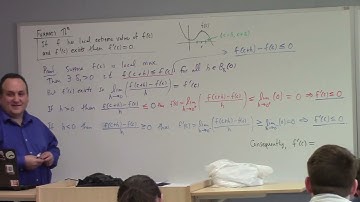 Fermat's Thm
If f has local extreme value at f(c)
and f'(c) exists then f'(c)=0.
f(c)
f(c+h)-f(c) ≤ 0
Proof Suppose f(c) is local max.
Then ∃ δ₁>0 f(c+h) ≤ f(c) for all h ∈
But f'(c) exists f'(c) = lim h→0 [ (f(c+h)-f(c))/h ]
If h>0 then (f(c+h)-f(c))/h ≤ 0 f'(c) = lim h→0⁺ [ (f(c+h)-f(c))/h ] ≤ lim h→0⁺ (0) = 0 ⇒ f'(c) ≤ 0
If h<0 then (f(c+h)-f(c))/h ≥ 0 thus f'(c) = lim h→0⁻ [ (f(c+h)-f(c))/h ] ≥ lim h→0⁻ (0) = 0
Consequently, f'(c) =